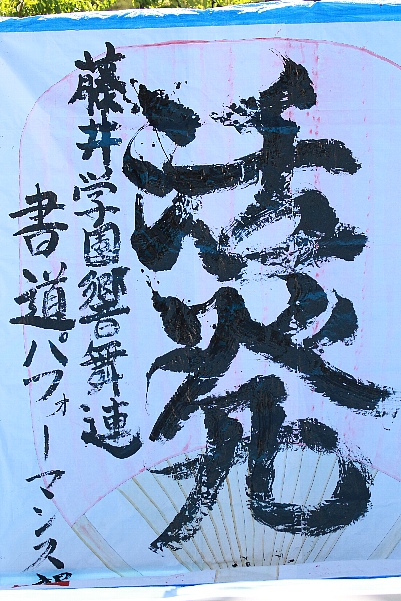 活発
藤井学園響舞連
書道パフォーマンス